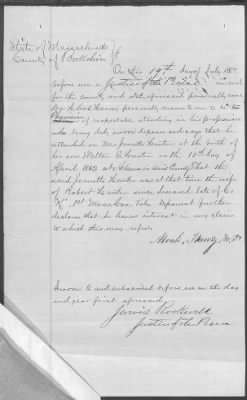 State of Massachusetts
County of Berkshire
On this 19th day of July 1864
before me a Justice of the Peace in and
for the county and State aforesaid personally came
personally known to me to be
Physician of respectable standing in his profession
who being duly sworn deposes and says that he
attended on Mrs Jennette Hunter at the birth of
her son Walter E. Hunter on the 10th day of
April 1863 at in said County That the
said Jennette Hunter was at that time the wife
of Robert Hunter since deceased late of Co
"K" 1st Mass Cav. Vols. Deponent further
declares that he has no interest in any claim
to which this may refer
M.D.
Sworn to and subscribed before me on the day
and year first aforesaid
Jarvis Rockwell
Justice of the Peace